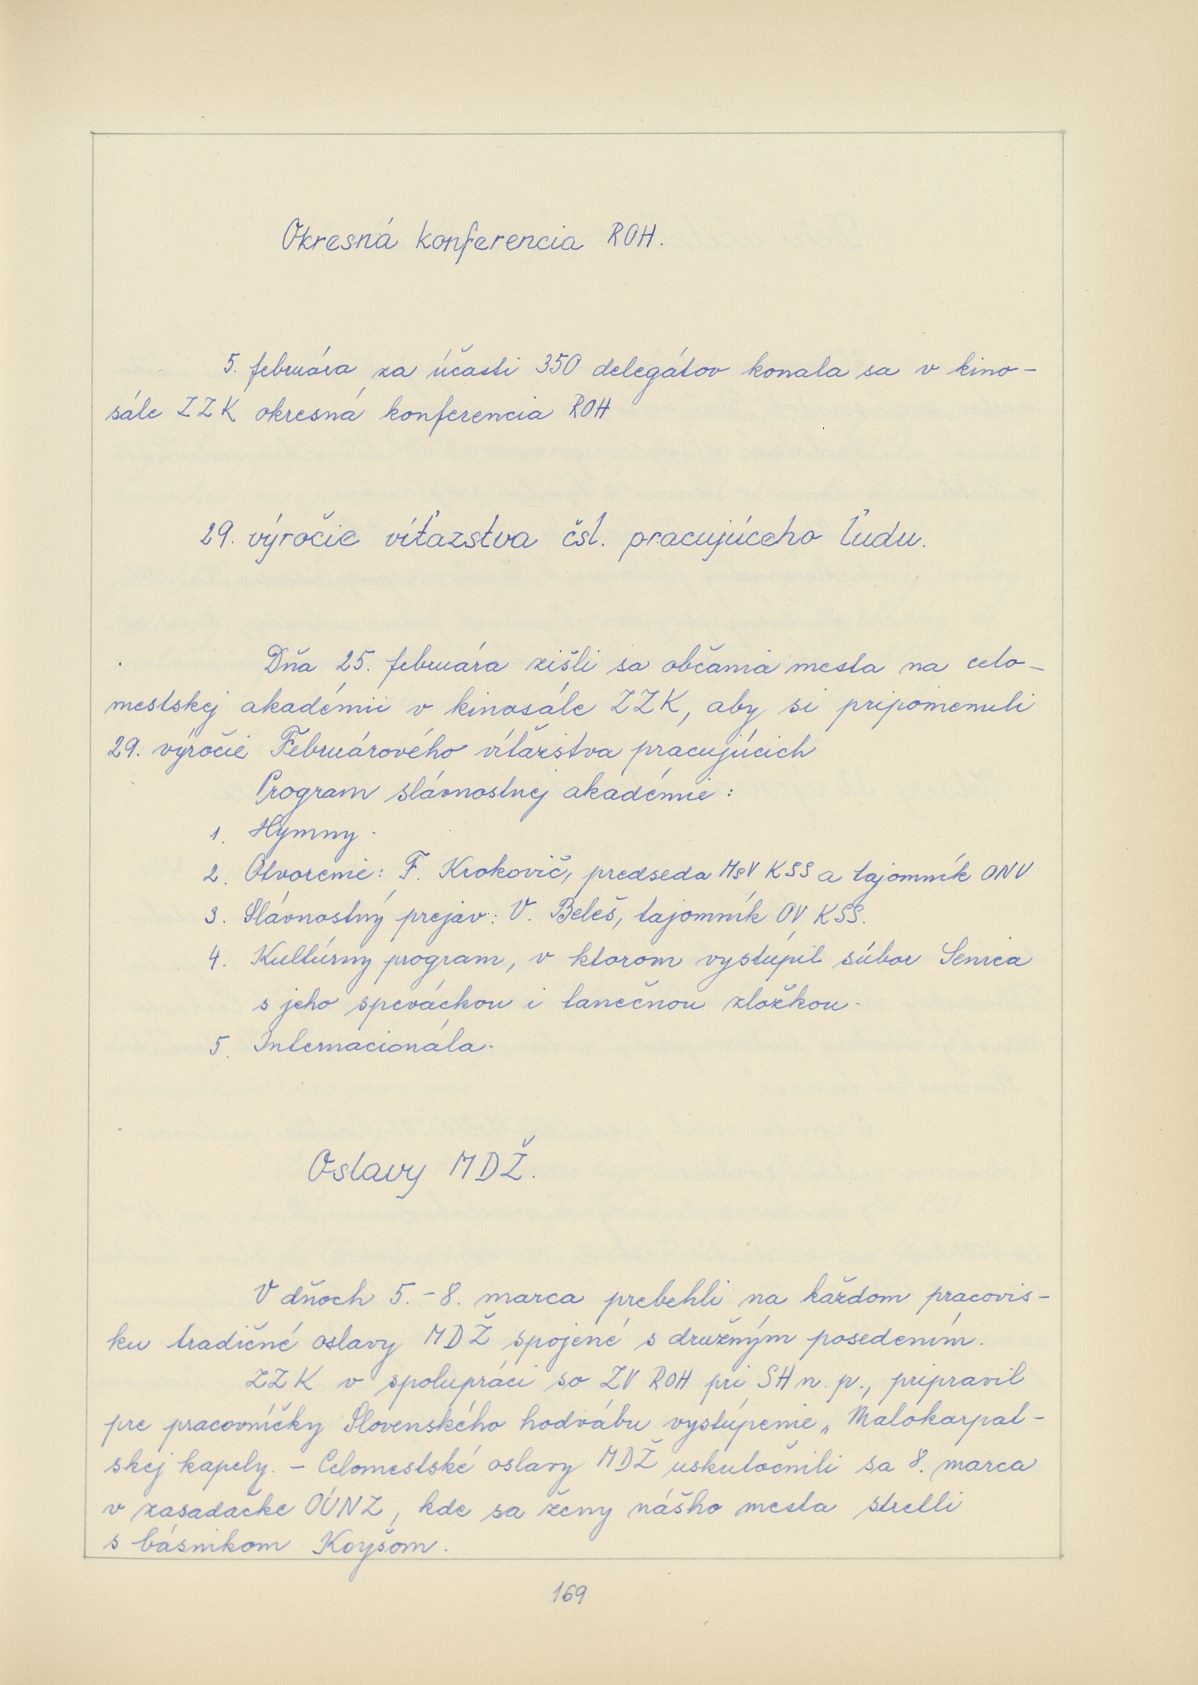 Okresná konferencia ROH.
5. februára za účasti 350 delegátov konala sa v kino-
sále ZZK okresná konferencia ROH
29. výročie víťazstva čsl. pracujúceho ľudu.
Dňa 25. februára zišli sa občania mesta na celo-
mestskej akadémii v kinosále ZZK, aby si pripomenuli
29. výročie Februárového víťazstva pracujúcich
Program slávnostnej akadémie:
1. Hymny.
2. Otvorenie: F. Krokovič, predseda MsV KSS a tajomník ONV
3. Slávnostný prejav: V. Beleš, tajomník OV KSS.
4. Kultúrny program, v ktorom vystúpil súbor Senica
s jeho speváckou i tanečnou zložkou.
5. Internacionála.
Oslavy MDŽ.
V dňoch 5.-8. marca prebehli na každom pracovis-
ku tradičné oslavy MDŽ spojené s družným posedením.
ZZK v spolupráci so ZV ROH pri SH n. p., pripravil
pre pracovníčky Slovenského hodvábu vystúpenie „Malokarpat-
skej kapely. - Celomestské oslavy MDŽ uskutočnili sa 8. marca
v zasadačke OÚNZ, kde sa ženy nášho mesta stretli
s básnikom Koyšom.
169